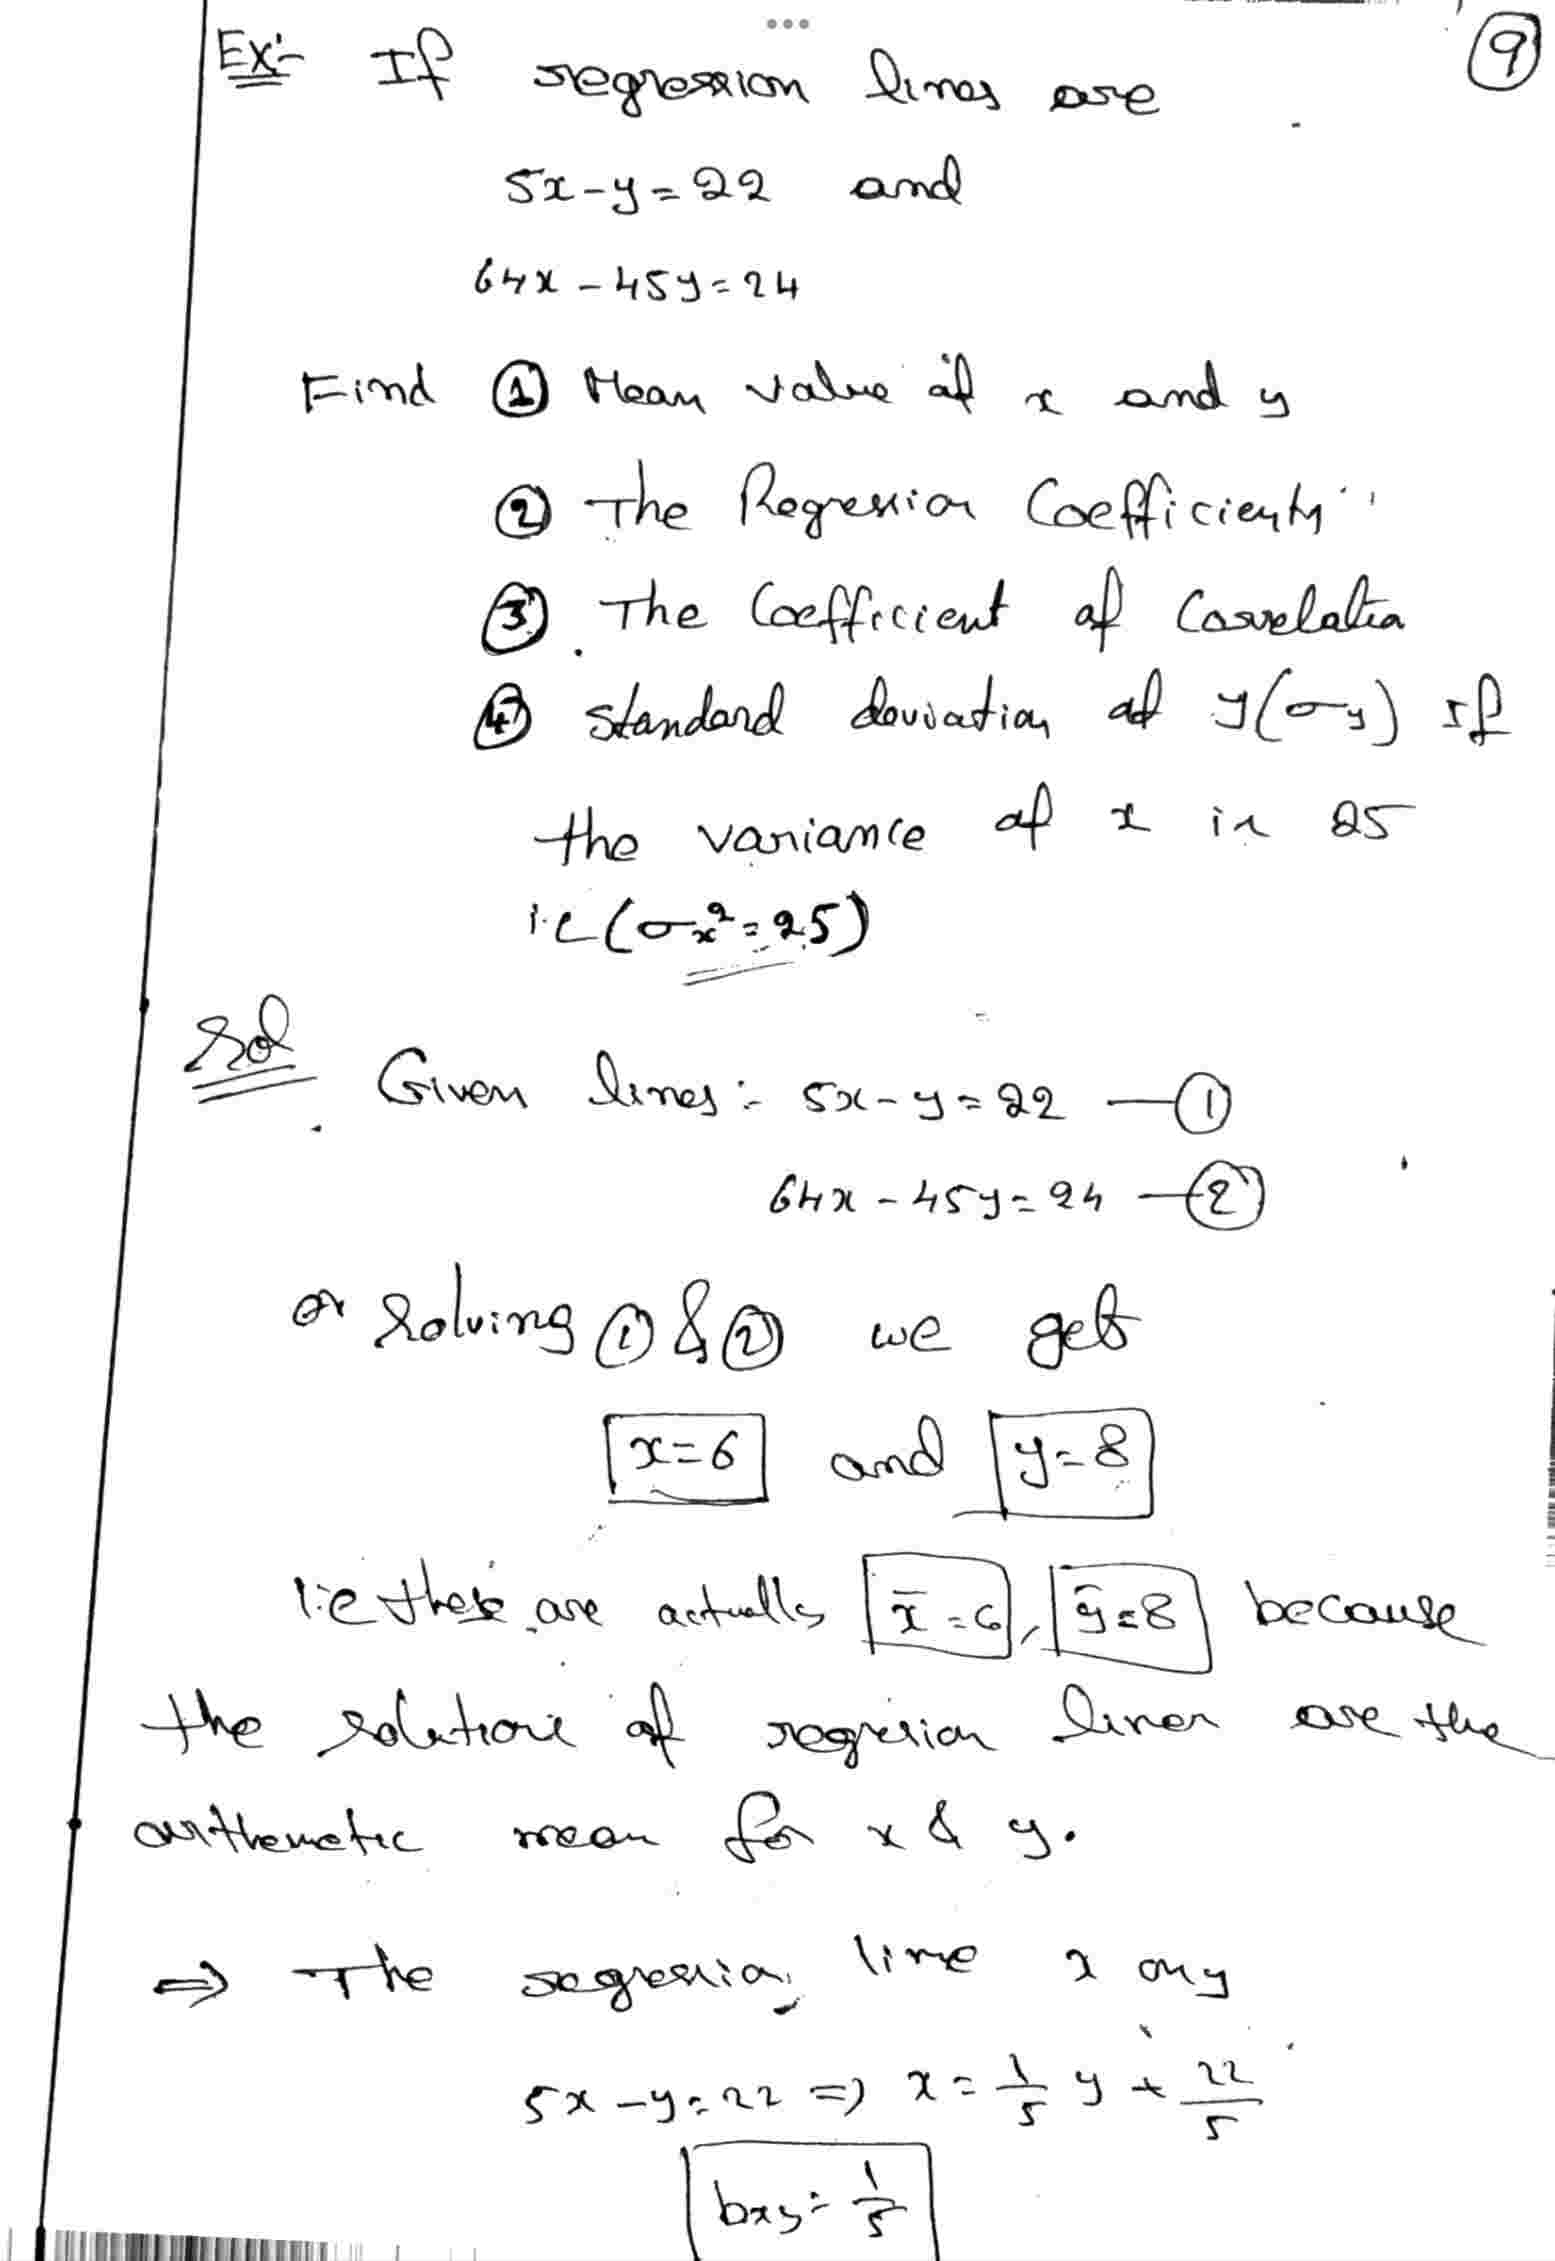 9
Ex:- If regression lines are
5x-y=22 and
64x-45y=24
Find ① Mean value of x and y
② The Regression Coefficients
③ The Coefficient of Correlation
④ standard deviation of y(σy) If
the variance of x is 25
i.e (σx²=25)
Sol Given lines:- 5x-y=22 —①
64x-45y=24 —②
on Solving ① & ② we get
x=6 and y=8
i.e these are actually x̄=6, ȳ=8 because
the solutions of regression lines are the
arithemetic mean for x & y.
⇒ The regression line x on y
5x-y=22 ⇒ x=1/5 y + 22/5
bxy=1/5